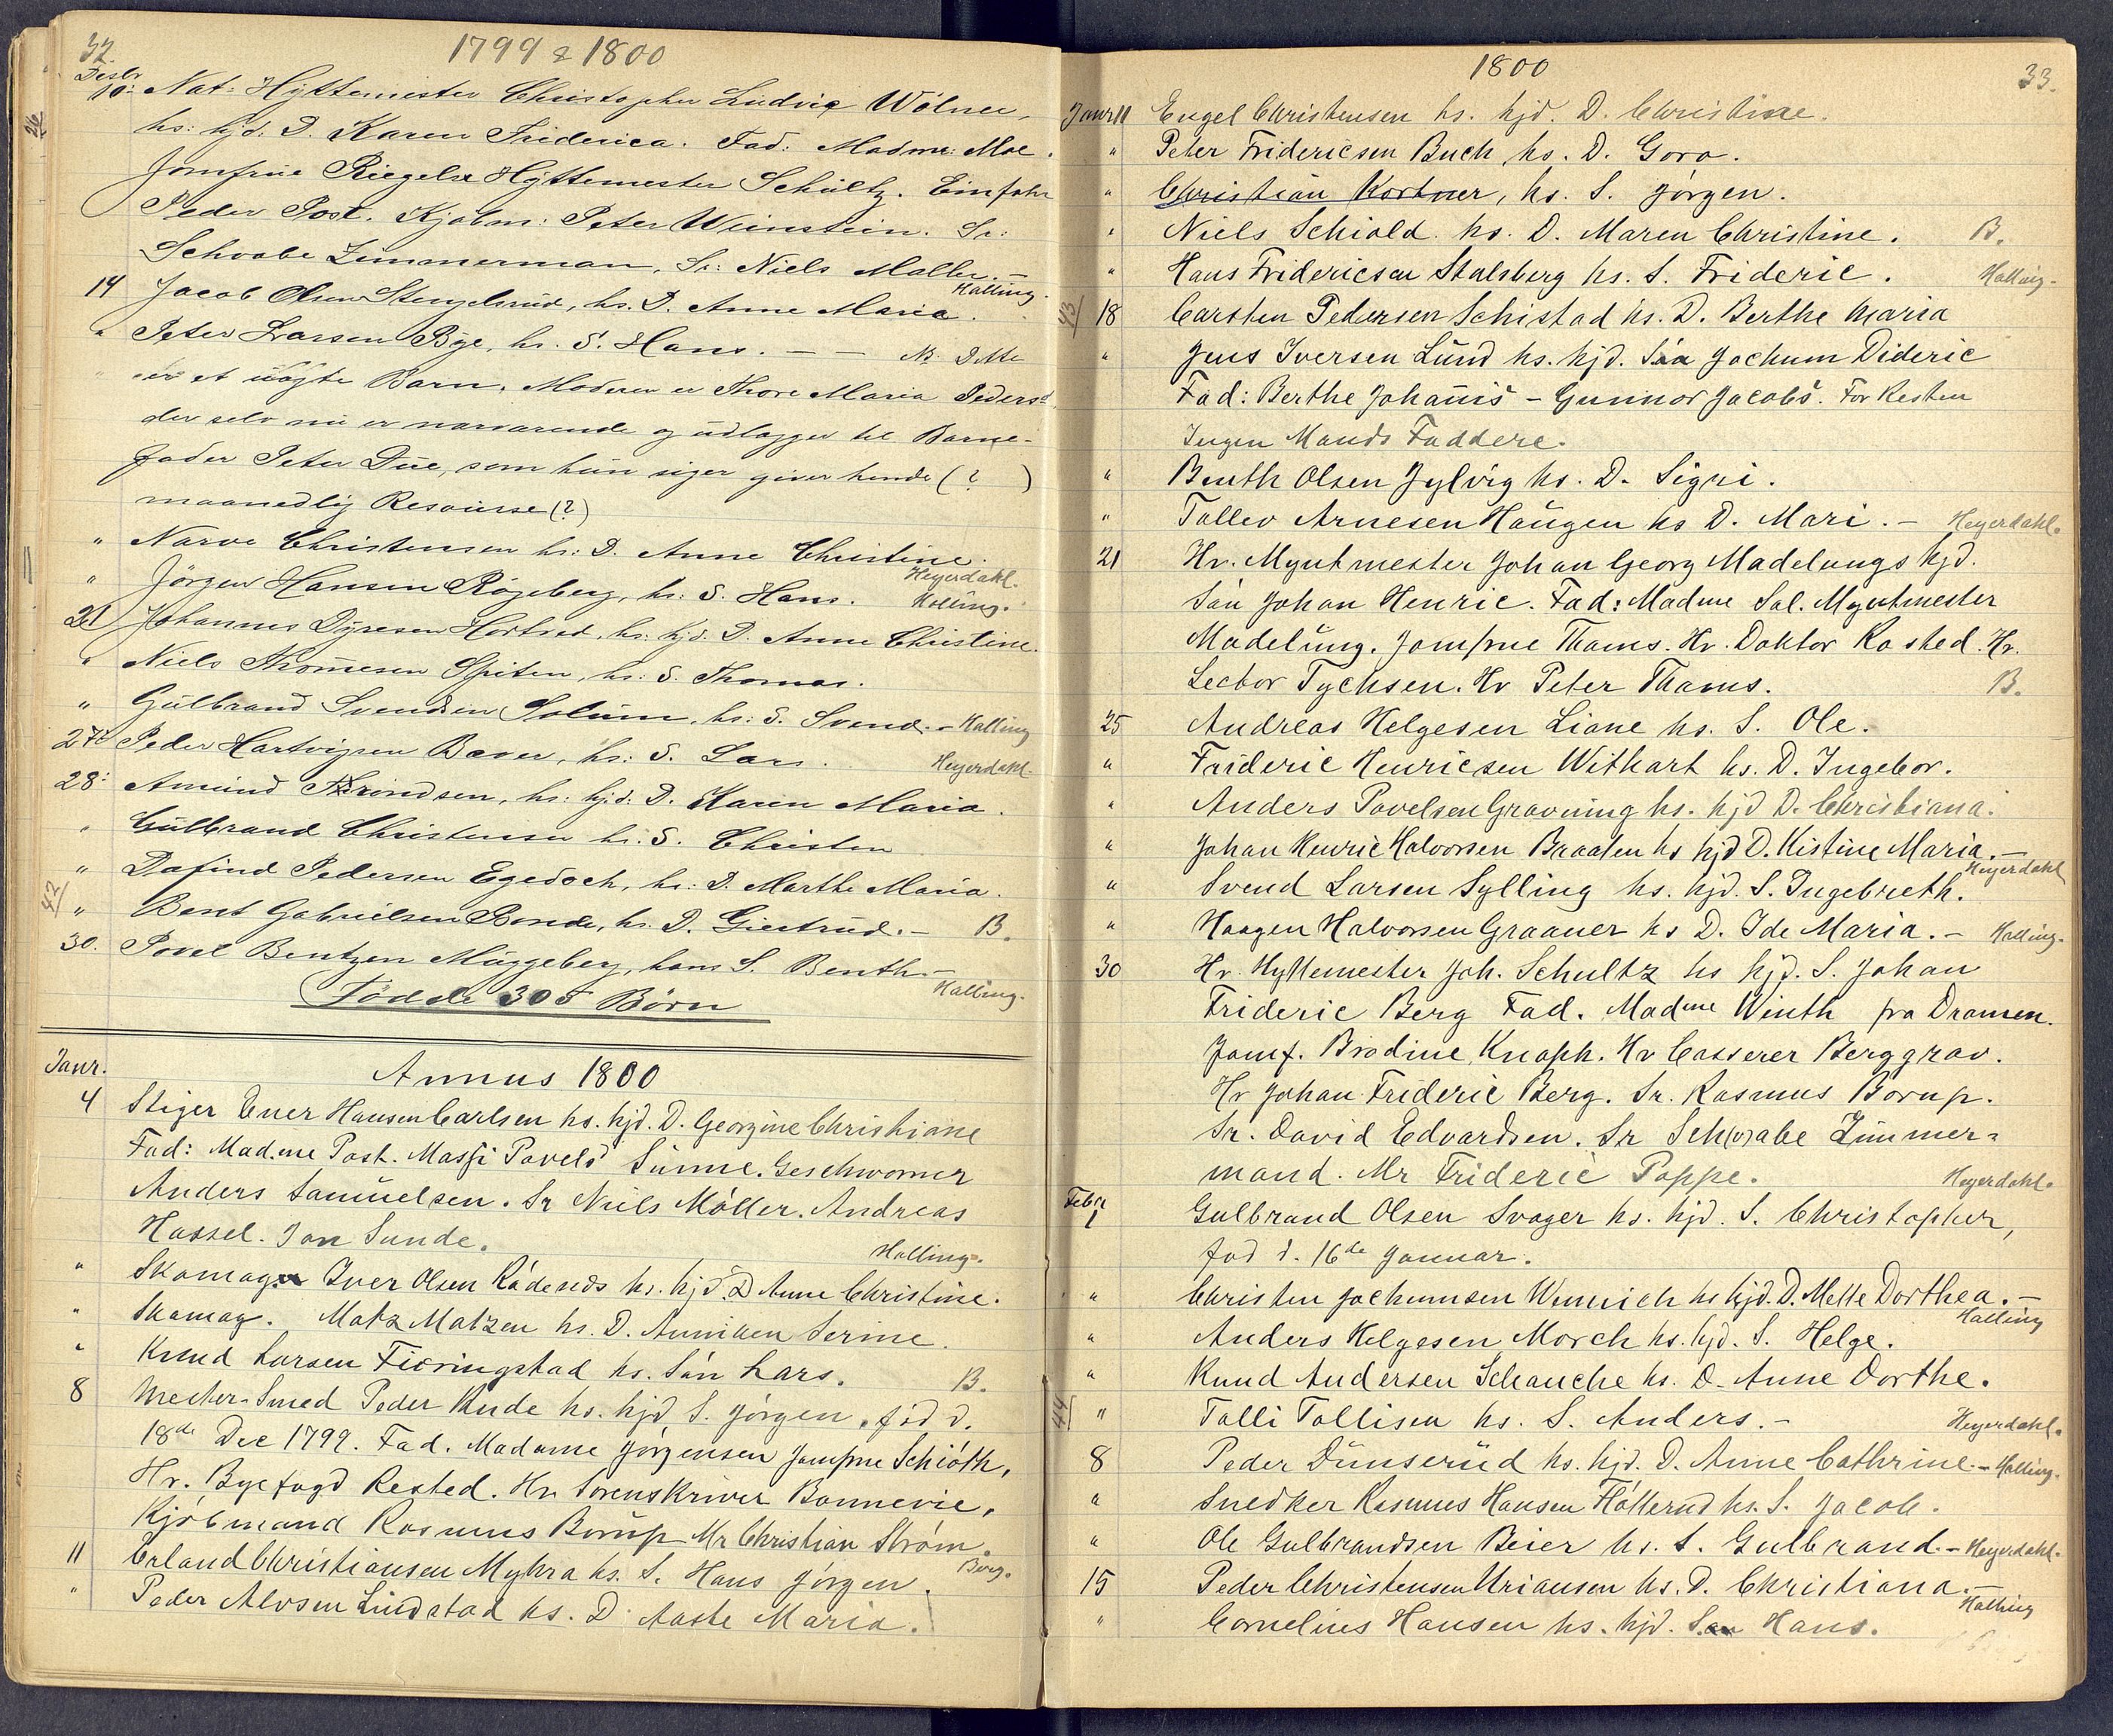 32.
1799 & 1800
Desbr
10: Nat: Hyttemester Christopher Ludvig Wölner,
hs: hjd: D. Karen Friderica. Fad: Madme: Moe.
Jomfrue Riegels Hyttemester Schultz. Einfahr
Peder Post. Kjøbm: Peter Weinstein. Sr:
Schvabe Zimmerman, Sr: Niels Møller. –
Halling.
14 Jacob Olsen Stengelsrud, hs. D. Anne Maria.
" Peter Larsen Bye, hs. S. Hans. – – NB. Dette
er et uægte Barn, Moderen er Thore Maria Pedersd
der selv nu er nærværende og udlægger til Barne-
fader Peter Due, som hun siger giver hende (? )
maanedlig Resourse (?)
" Narve Christensen hs: D. Anne Christine.
Heyerdahl.
" Jörgen Hansen Røgeberg, hs: S. Hans. Halling.
21 Johannes Dyresen Hortsed, hs: hjd: D. Anne Christine.
" Niels Thomesen Spiten, hs: S. Thomas.
" Gulbrand Svendsen Solum, hs: S. Svend. – Halling
27 Peder Hartvigsen Baver, hs: S. Lars.
Heyerdahl.
28: Amund Throndsen, hs: hjd: D. Karen Maria.
" Gulbrand Christensen hs: S. Christen
" Dafind Pedersen Egedoch, hs: D. Marthe Maria.
42/ " Bent Gabrielsen Bonde, hs. D. Giertrud. – B.
30. Povel Bentzen Muggeberg, hans S. Benth –
Halling.
Fødde 305 Børn
Janr.
Annus 1800
4 Stiger Ener Hansen Carlsen hs. hjd. D. Georgine Christiane
Fad: Mad.me Post. Massi Povels Sunne. Geschworner
Anders Samuelsen. Sr Niels Møller. Andreas
Hassel. Jon Sunde.
Halling.
" Skomager Iver Olsen Rådends hs. hjd. D Anne Christine.
" Skomag. Matz Matzen hs. D. Anniken Serine.
" Knud Larsen Fieringstad hs. Søn Lars. B.
8 Mester-Smed Peder Rude hs. hjd S. Jörgen, fød d.
18de Dec 1799. Fad. Madame Jörgensen Jomfrue Schiöth,
Hr. Byefogd Rosted. Hr. Sorenskriver Bonnevie,
Kjöbmand Rasmus Borup Mr Christian Ström.
Berg.
11 Erland Christiansen Myhra hs. S. Hans Jörgen.
" Peder Alvsen Lindstad hs. D. Aaste Maria.
1800
33.
Janr 11 Engel Christensen hs. hjd. D. Christine.
" Peter Fridericsen Buch, hs. D. Gora.
" Christian Kortner, hs. S. Jörgen.
" Niels Schiold hs. D. Maren Christine. B.
" Hans Fridericsen Stalsberg hs. S. Frideric. Halling.
43/ 18 Carsten Pedersen Schistad hs. D. Berthe Maria
" Jens Iversen Lund hs. hjd. Søn Jochum Dideric
Fad: Berthe Johannis – Gunnor Jacobs. For Resten
Ingen Mands Faddere.
" Benth Olsen Jylvig hs. D. Signi.
" Tollev Arnesen Haugen hs D. Mari. – Heyerdahl.
21 Hr. Myntmester Johan Georg Madelungs hjd.
Søn Johan Henric. Fad: Madme Sal. Myntmester
Madelung. Jomfrue Thams. Hr. Doktor Rosted. Hr.
Lector Tychsen. Hr Peter Thams. B.
25 Andreas Helgesen Liane hs. S. Ole.
" Frideric Henricsen Withart hs. D. Ingebor.
" Anders Povelsen Gravning hs. hjd D. Christiana.
" Johan Henric Halvorsen Braaten hs hjd D. Kistine Maria. –
Heyerdahl
" Svend Larsen Sylling hs. hjd. S. Ingebreth.
" Haagen Halvorsen Graaner hs D. Ide Maria. – Halling.
30 Hr. Hyttemester Joh. Schultz hs hjd. S. Johan
Frideric Berg Fad. Madme Winth fra Dramen.
Jomf. Brodine Knoph. Hr Casserer Berggrav.
Hr Johan Frideric Berg. Sr. Rasmus Borup.
Sr. David Edvardsen. Sr Sch(v)abe Zimmer=
mand. Mr Frideric Poppe. Heyerdahl.
Febr
1 Gulbrand Olsen Svager hs. hjd. S. Christopher,
fød d. 16de Januar.
" Christen Jochumsen Wunnich hs hjd. D. Mette Dorthea. –
Halling
" Anders Helgesen Morch hs. hjd. S. Helge.
" Knud Andersen Schanche hs. D. Anne Dorthe.
44/ " Tolli Tollisen hs. S. Anders. – Heyerdahl.
8 Peder Dunserud hs. hjd. D. Anne Cathrine. – Halling.
" Snedker Rasmus Hansen Flötterud hs. S. Jacob.
" Ole Gulbrandsen Beier hs. S. Gulbrand. – Heyerdahl.
15 Peder Christensen Uriansen hs. D. Christiana. –
Halling
" Cornelius Hansen hs. hjd. Søn Hans.